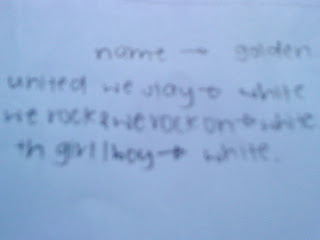 name → golden
united we slay → white
we rock & we rock on → white
th girl/boy → white.